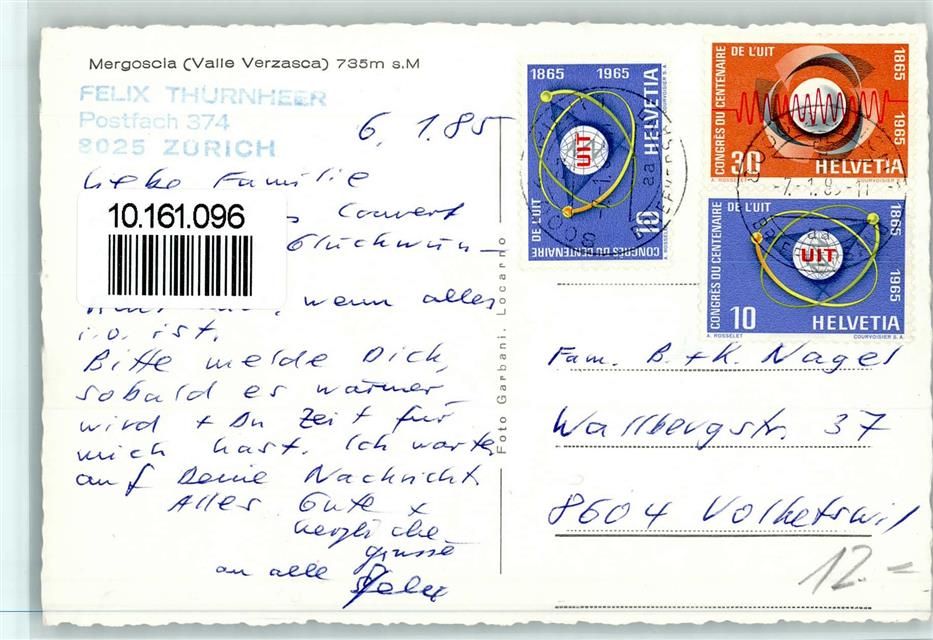 Mergoscia (Valle Verzasca) 735m s.M
FELIX THURNHEER
Postfach 374
8025 ZÜRICH
6. 1.85
Liebe Familie
Couvert
Glückwün-
10.161.096
wenn alles
i.o. ist.
Bitte melde Dich,
sobald es wärmer
wird + Du Zeit für
mich hast. Ich warte
auf Deine Nachricht.
Alles Gute +
herzliche
grüsse
an alle Felix
Foto Garbani, Locarno
1865 1965
HELVETIA
UIT
10
CONGRÈS DU CENTENAIRE
DE L'UIT
COURVOISIER S.A.
CONGRÈS DU CENTENAIRE
DE L'UIT
1865
1965
30
HELVETIA
A. ROSSELET
COURVOISIER S.A.
-7.-1.85-11
CONGRÈS DU CENTENAIRE
DE L'UIT
1865
1965
UIT
10
HELVETIA
A. ROSSELET
COURVOISIER S.A.
Fam. B. + K. Nagel
Wallbergstr. 37
8604 Volketswil
12.-